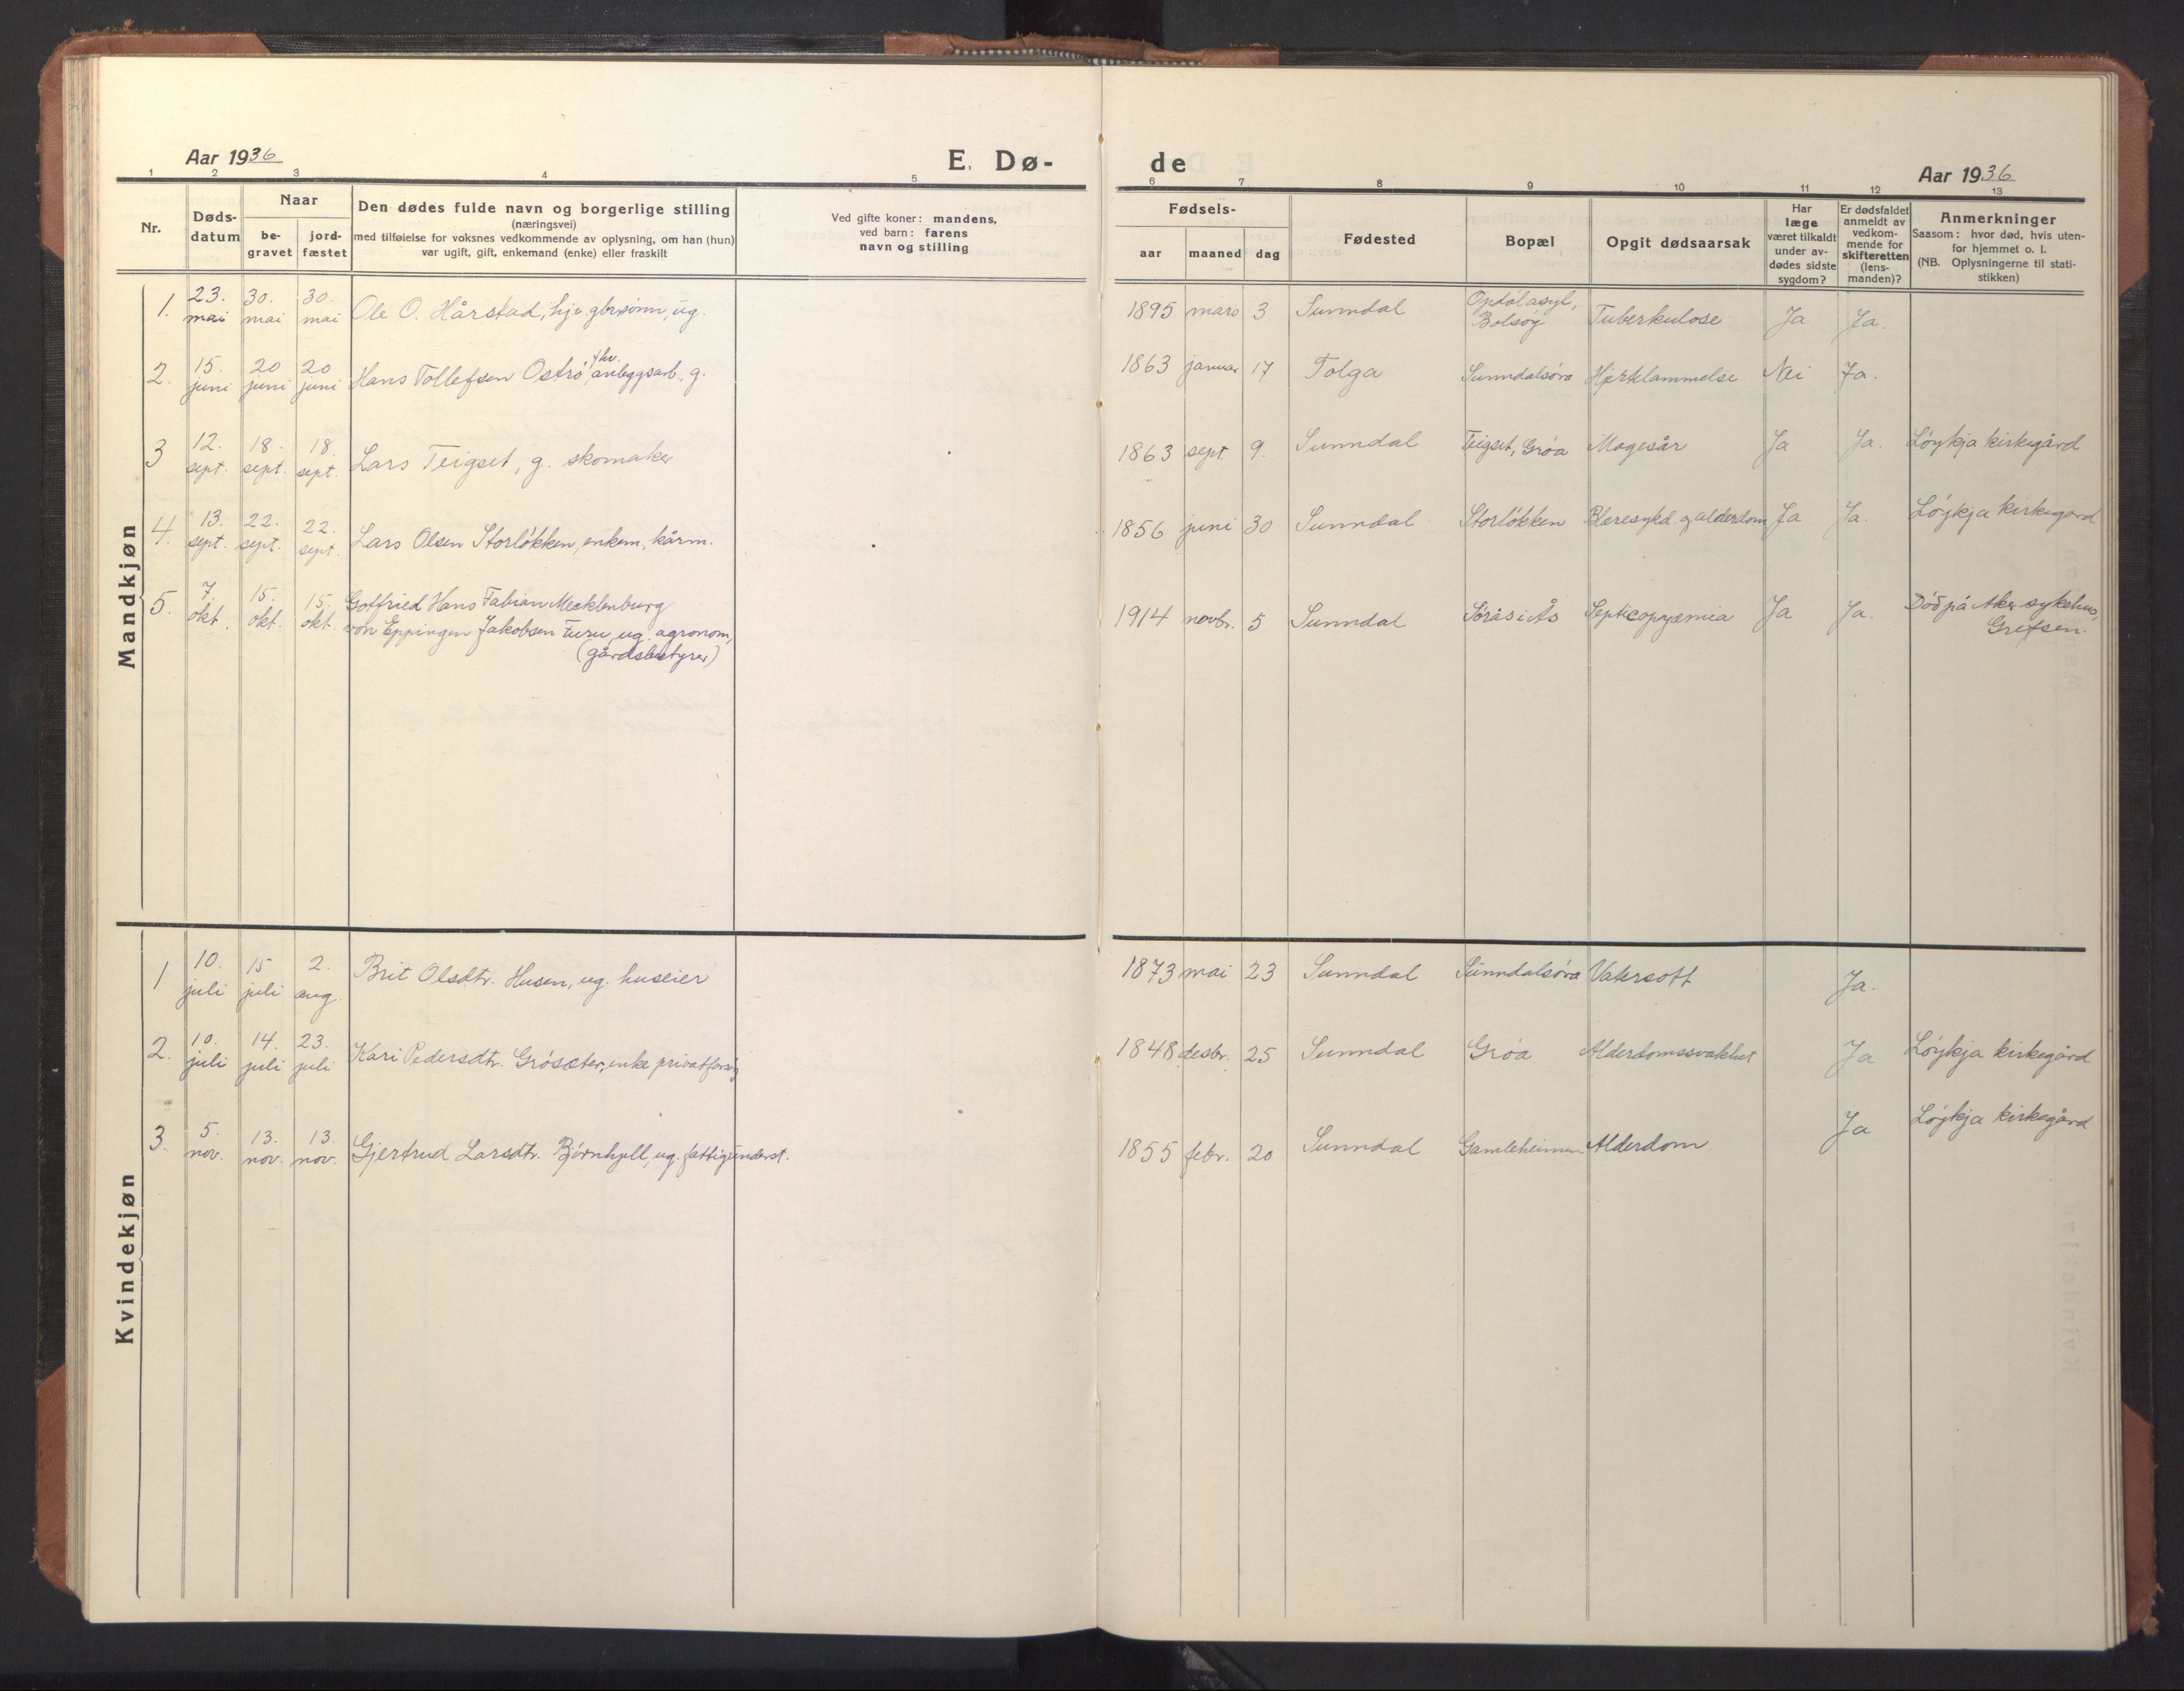 Aar 1936
E. Dø-
de
Aar 1936
1 2 3 4 5 6 7 8 9 10 11 12 13
Nr.
Døds-
datum
Naar
be-
gravet
jord-
fæstet
Den dødes fulde navn og borgerlige stilling
(næringsvei)
med tilføielse for voksnes vedkommende av oplysning, om han (hun)
var ugift, gift, enkemand (enke) eller fraskilt
Ved gifte koner: mandens,
ved barn: farens
navn og stilling
Fødsels-
aar maaned dag
Fødested
Bopæl
Opgit dødsaarsak
Har
læge
været tilkaldt
under av-
dødes sidste
sygdom?
Er dødsfaldet
anmeldt av
vedkom-
mende for
skifteretten
(lens-
manden)?
Anmerkninger
Saasom: hvor død, hvis uten-
for hjemmet o. l.
(NB. Oplysningerne til stati-
stikken)
Mandkjøn
1. 23. mai 30. mai 30. mai Ole O. Hårstad, hjv. gbr.sønn, ug. 1895 mars 3 Sunndal Opdøl asyl, Bolsøy Tuberkulose Ja Ja.
2. 15. juni 20 juni 20 juni Hans Tollefsen Østrø, fhv. anleggsarb., g. 1863 januar 17 Tolga Sunndalsøra Hjerteblammelse Nei Ja.
3 12. sept. 18. sept. 18. sept. Lars Teigset, g. skomaker 1863 sept. 9. Sunndal Teigset, Grøa Magesår Ja Ja. Løykja kirkegård
4. 13. sept. 22. sept. 22. sept. Lars Olsen Storløkken, enkem., kårm. 1856 juni 30 Sunndal Storløkken Blæresykd. og alderdom Ja Ja. Løykja kirkegård
5. 7. okt. 15. okt. 15. okt. Gotfried Hans Fabian Mecklenburg
von Eppingen Jakobsen Furu, ug. agronom,
(gårdsbestyrer) 1914 novbr. 5 Sunndal Sørås i Ås Septicopyæmia Ja Ja. Død på Aker sykehus,
Grefsen.
Kvindekjøn
1 10. juli 15 juli 2. aug. Brit Olsdtr. Husen, ug. huseier 1873 mai 23 Sunndal Sunndalsøra Vatersott Ja.
2. 10. juli 14. juli 23. juli Kari Pedersdtr. Grøsæter, enke privat forsørg 1848 desbr. 25 Sunndal Grøa Alderdomssvakhet Ja Løykja kirkegård
3. 5. nov. 13. nov. 13. nov. Gjertrud Larsdtr. Bjørnhjell, ug. fattigunderst. 1855 febr. 20 Sunndal Gamleheimen Alderdom Ja Løykja kirkegård